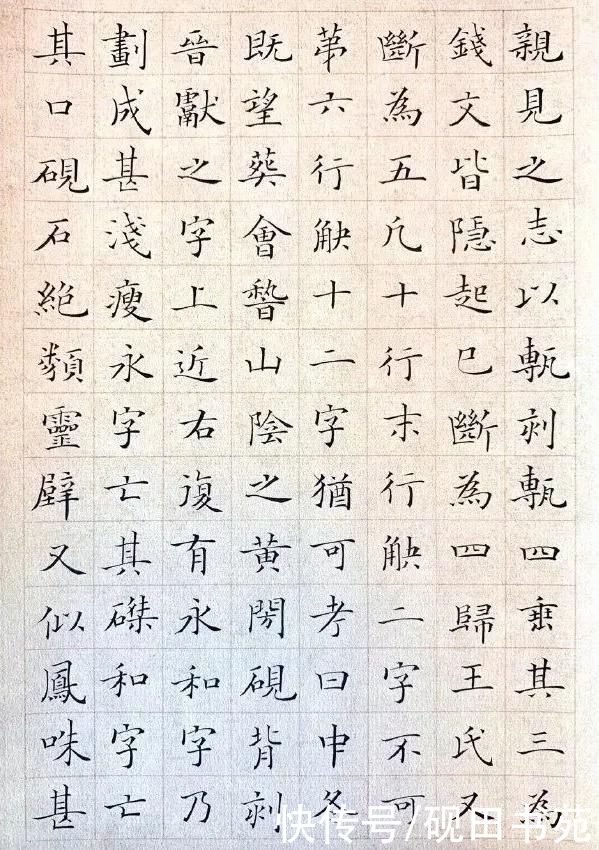 親見之志以甎刻甎四垂其三為
錢文皆隱起已斷為四歸王氏又
斷為五凡十行末行觖二字不可
第六行觖十二字猶可考曰中冬
既望葬會稽山陰之黃閍硯背刻
晉獻之字上近右復有永和字乃
劃成甚淺瘦永字亡其磔和字亡
其口硯石絕類靈壁又似鳳咮甚
快传号/砚田书苑